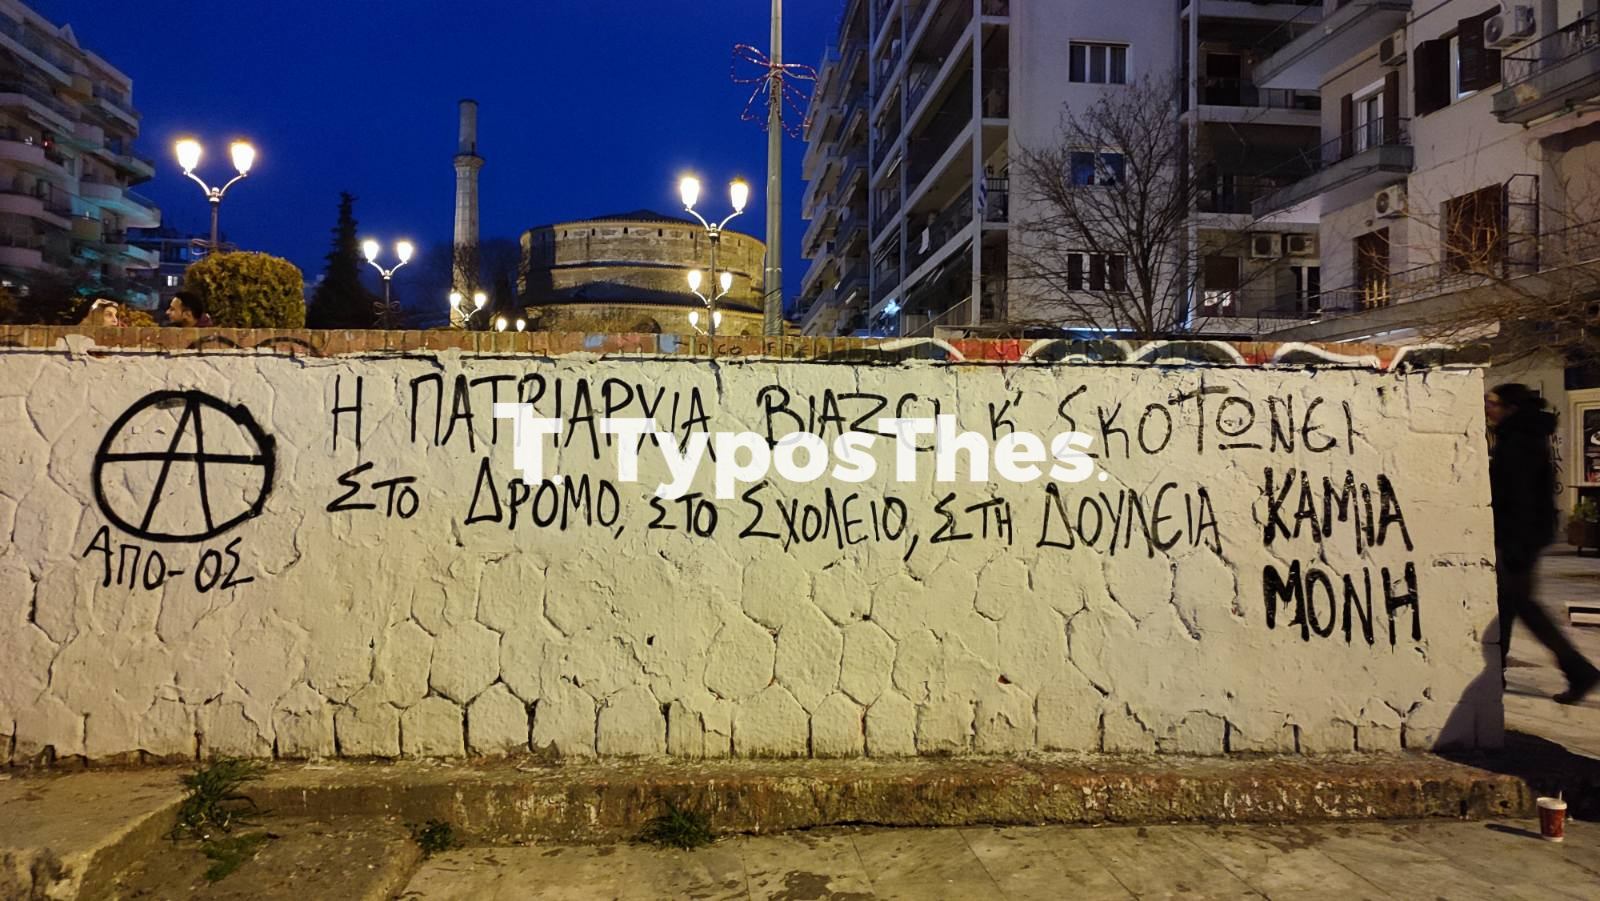 Η ΠΑΤΡΙΑΡΧΙΑ ΒΙΑΖΕΙ Κ' ΣΚΟΤΩΝΕΙ
ΣΤΟ ΔΡΟΜΟ, ΣΤΟ ΣΧΟΛΕΙΟ, ΣΤΗ ΔΟΥΛΕΙΑ ΚΑΜΙΑ
ΜΟΝΗ
ΑΠΟ-ΟΣ
T. TyposThes.